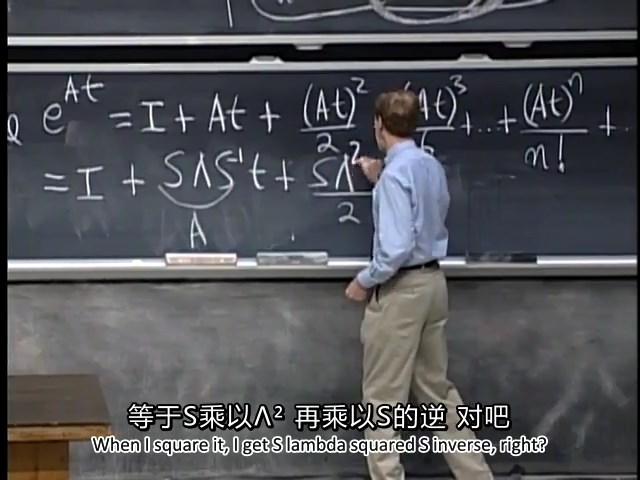 e^{At} = I + At + (At)²/2 + (At)³/6 + ... + (At)ⁿ/n! + ..
= I + SΛS⁻¹t + SΛ²/2
A
等于S乘以Λ² 再乘以S的逆 对吧
When I square it, I get S lambda squared S inverse, right?